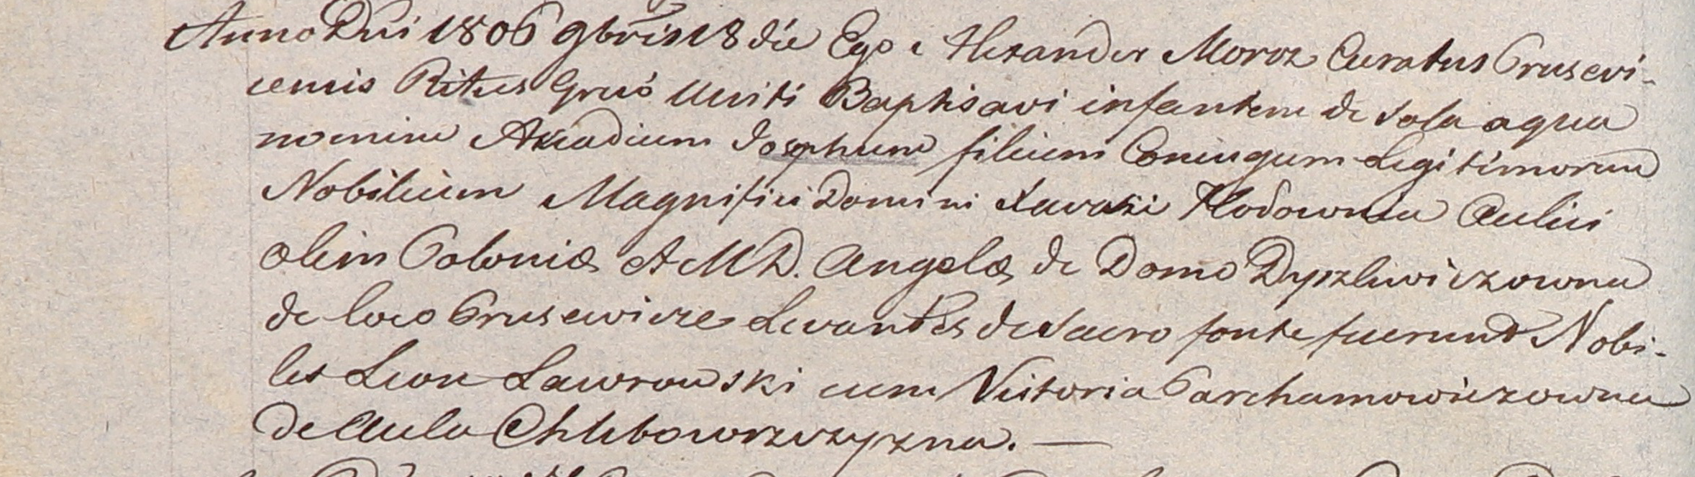 Anno Dni 1806 9bris 18 die Ego Alexander Moroz Curatus Prusevi-
censis Ritus Graeo Uniti Baptisavi infantem de sola aqua
nomine Arcadium Josephum filium Coniugum Legitimorum
Nobilium Magnifici Domini Hodowna Aulici
olim Poloniæ et M D. Angelæ de Domo Dyszlewiczowna
de loco Prusewicze Levantes de Sacro fonte fuerunt Nobi-
les Leon Lawrowski cum Victoria Parchamowiczowna
de Aula Chlebowszczyzna. —